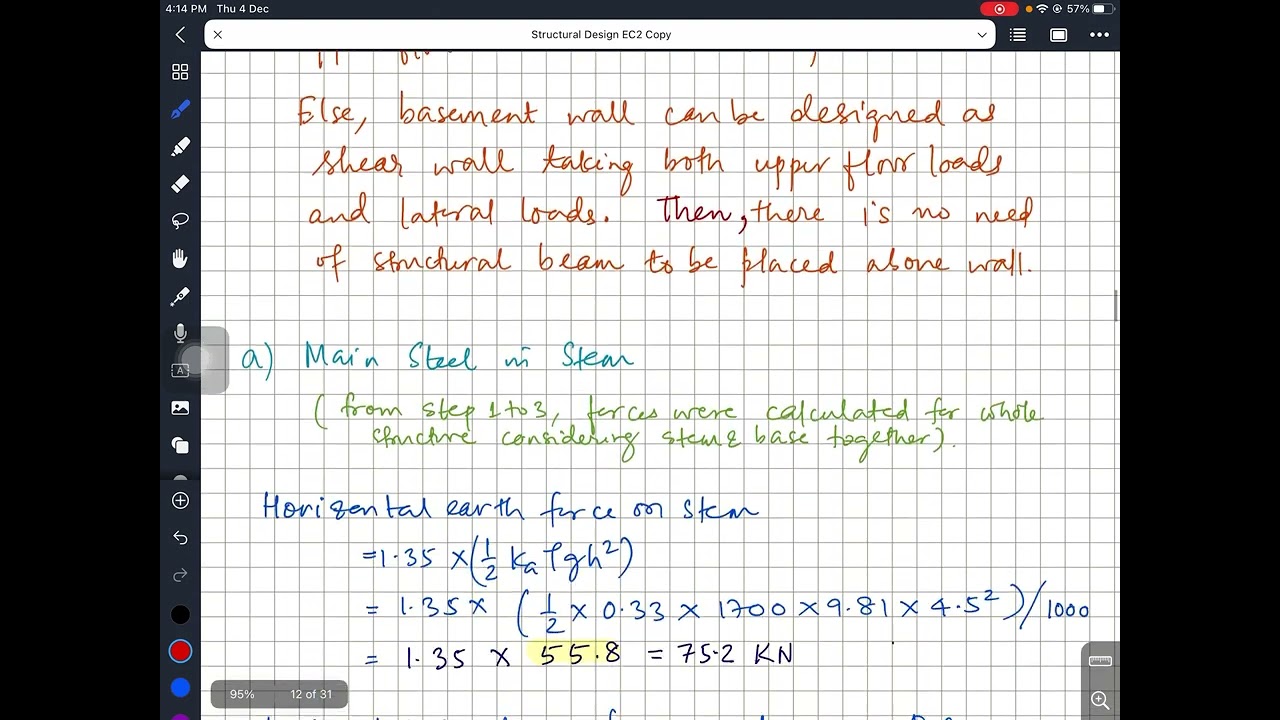 4:14 PM Thu 4 Dec
57%
Structural Design EC2 Copy
Else, basement wall can be designed as
shear wall taking both upper floor loads
and lateral loads. Then, there is no need
of structural beam to be placed above wall.
a) Main Steel in Stem
(from step 1 to 3, forces were calculated for whole
structure considering stem & base together).
Horizontal earth force on stem
=1.35 × (1/2 Ka ρgh²)
= 1.35 × (1/2 × 0.33 × 1700 × 9.81 × 4.5²)/1000
= 1.35 × 55.8 = 75.2 KN
95% 12 of 31